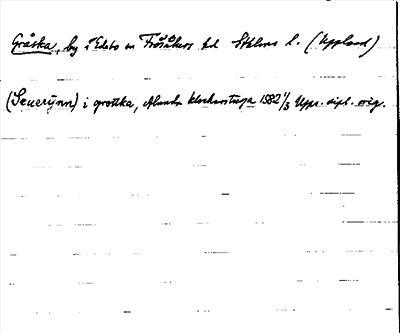 Gråska, by i Edebo sn Frösåkers hd Sthlms l. (Uppland)
(Seuerÿnn) i grottka, Alunda klockarstuga 1582 1/3 Upps. dipl. orig.